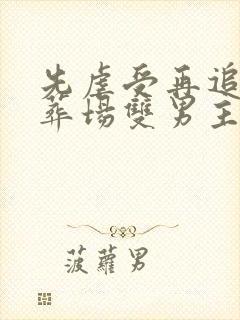 先虐受再追
葬場雙男主
菠蘿男